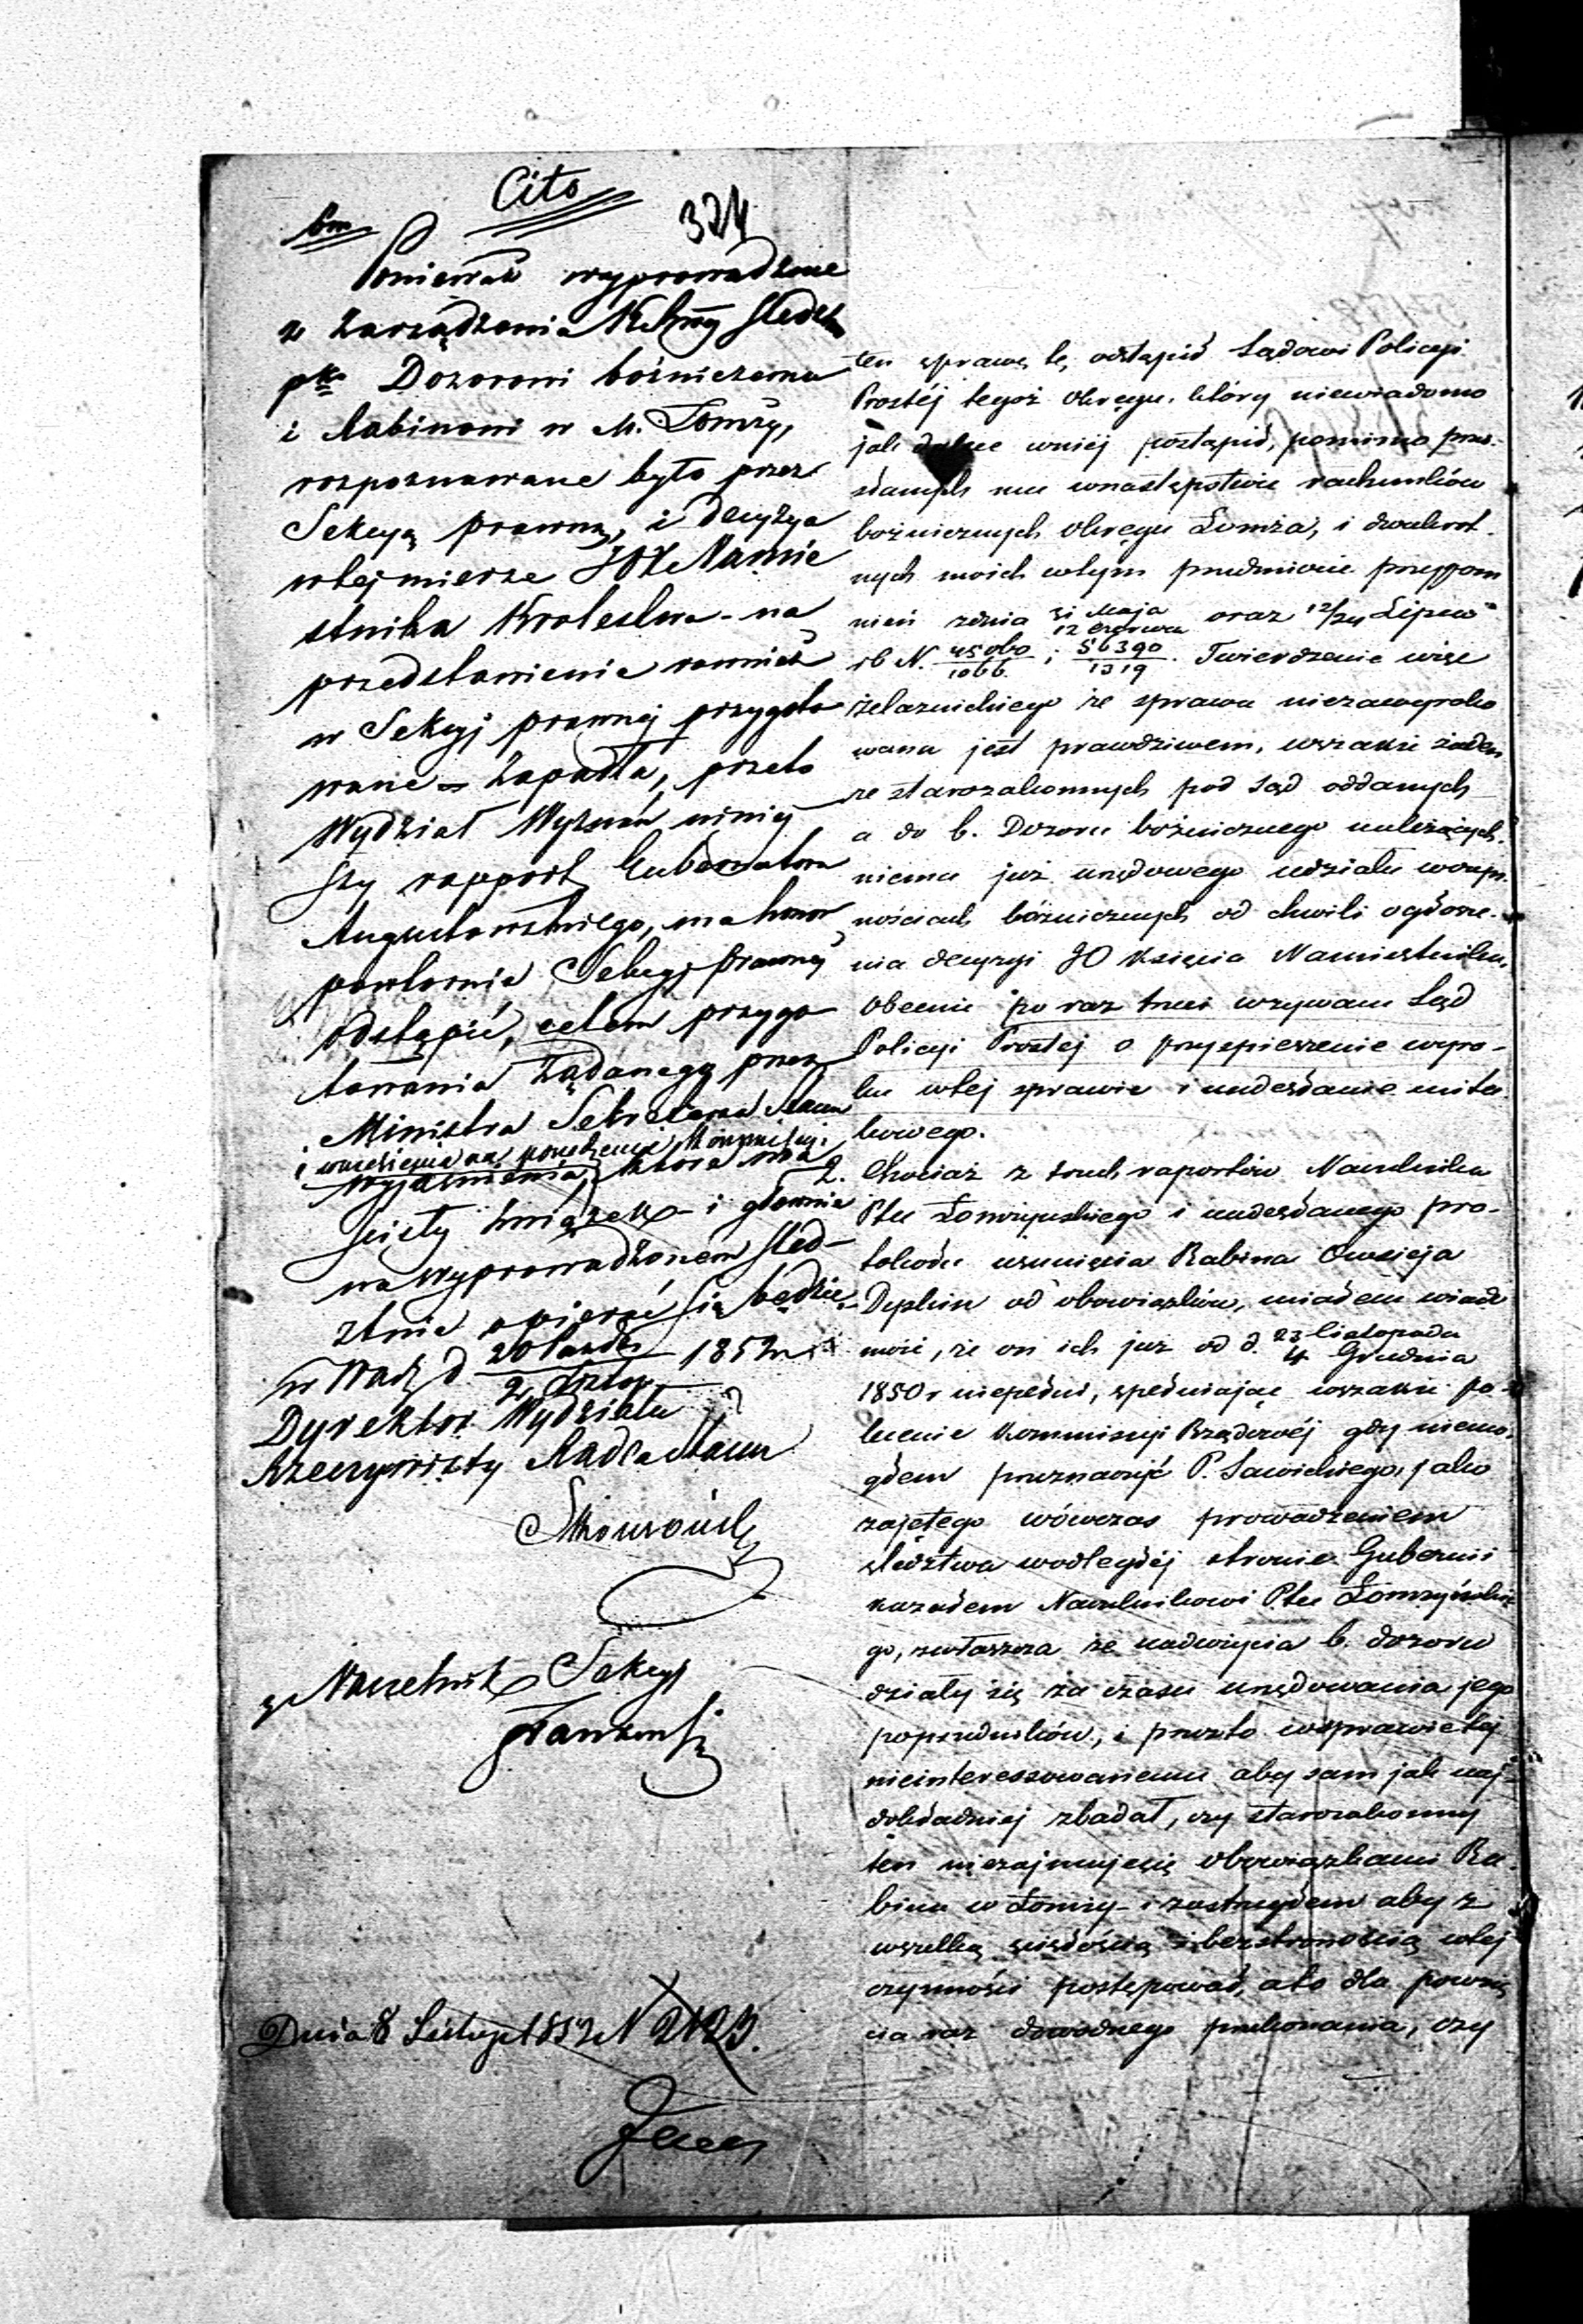 Cito
324
Ponieważ wyprowadzone
z zarządzenia śledz
pko Dozorowi bóżniczemu
i Rabinowi w M. Łomży,
rozpoznawane było przez
Sekcyą prawną, i decyzya
w tej mierze JOX Namie
stnika Królestwa na
przedstawienie również
w Sekcyj prawnej przygoto
wane zapadła, przeto
Wydział Wyznań niniej
szy rapport Gubernatora
Augustowskiego, ma honor
powtórnie Sekcyj Prawnej
odstąpić, celem przygo
towania żądanego przez
Ministra Sekretarza Stanu
i wniesienia na
wyjaśnienia, które ma
ścisły związek i głównie
na wyprowadzonem śled-
ztwie opierać się będzie
w Warsz d 20 Paźdz 1852 r
Dyrektor Wydziału
Rzeczywisty Radca Stanu
Naczelnik Sekcyj
Dnia 8 Listop 1852 N 2123.
ten sprawę tę odstąpił Sądowi Policyi
Prostéj tegoż Okręgu, który niewiadomo
jak dalece wniéj postąpił, pomimo prze-
słanych mu wnastępstwie rachunków
bożniczych Okręgu Łomża, i dwukrot-
nych moich wtym przedmiocie przypom
nień zdnia 31 Maja 12 Czerwca oraz 12/24 Lipca
rb N. 45060/1066 i 56390/1319. Twierdzenie więc
Żelaznickiego że sprawa niezawyroko
wana jest prawdziwem, wszakże żaden
ze starozakonnych pod sąd oddanych
a do b. Dozoru bóżniczego należących,
niema już urzędowego udziału wczyn-
nościach bóżniczych od chwili ogłosze-
nia decyzyi JO Księcia Namiestnika,
Obecnie po raz trzeci wzywam Sąd
Policyi Prostej o przyspieszenie wyro-
ku wtej sprawie i nadesłanie mi ta
kowego.
2. Chociaż z trzech raportów Naczelnika
Ptu Łomżyńskiego i nadesłanego pro-
tokółu usunięcia Rabina Owsieja
Depkin od obowiązków, miałem wiado
mość, że on ich już od d. 23 Listopada 4 Grudnia
1850 r niepełni, spełniając wszakże po-
lecenie Kommisyi Rządowéj gdy niemo-
głem przeznaczyć P. Sawickiego, jako
zajętego wówczas prowadzeniem
śledztwa wodległéj stronie Gubernii
kazałem Naczelnikowi Ptu Łomżyńskie
go, zwłaszcza że nadużycia b. dozoru
działy się za czasu urzędowania jego
poprzedników, i przeto wsprawie tej
nieinteressowanemu aby sam jak naj-
dokładniej zbadał, czy starozakonny
ten niezajmuje się obowiązkami Ra-
bina w Łomży i zastrzegłem aby z
wszelką ścisłością i bezstronnością wtej
czynności postępował, a to dla powzię
cia raz dowodnego przekonania, czy